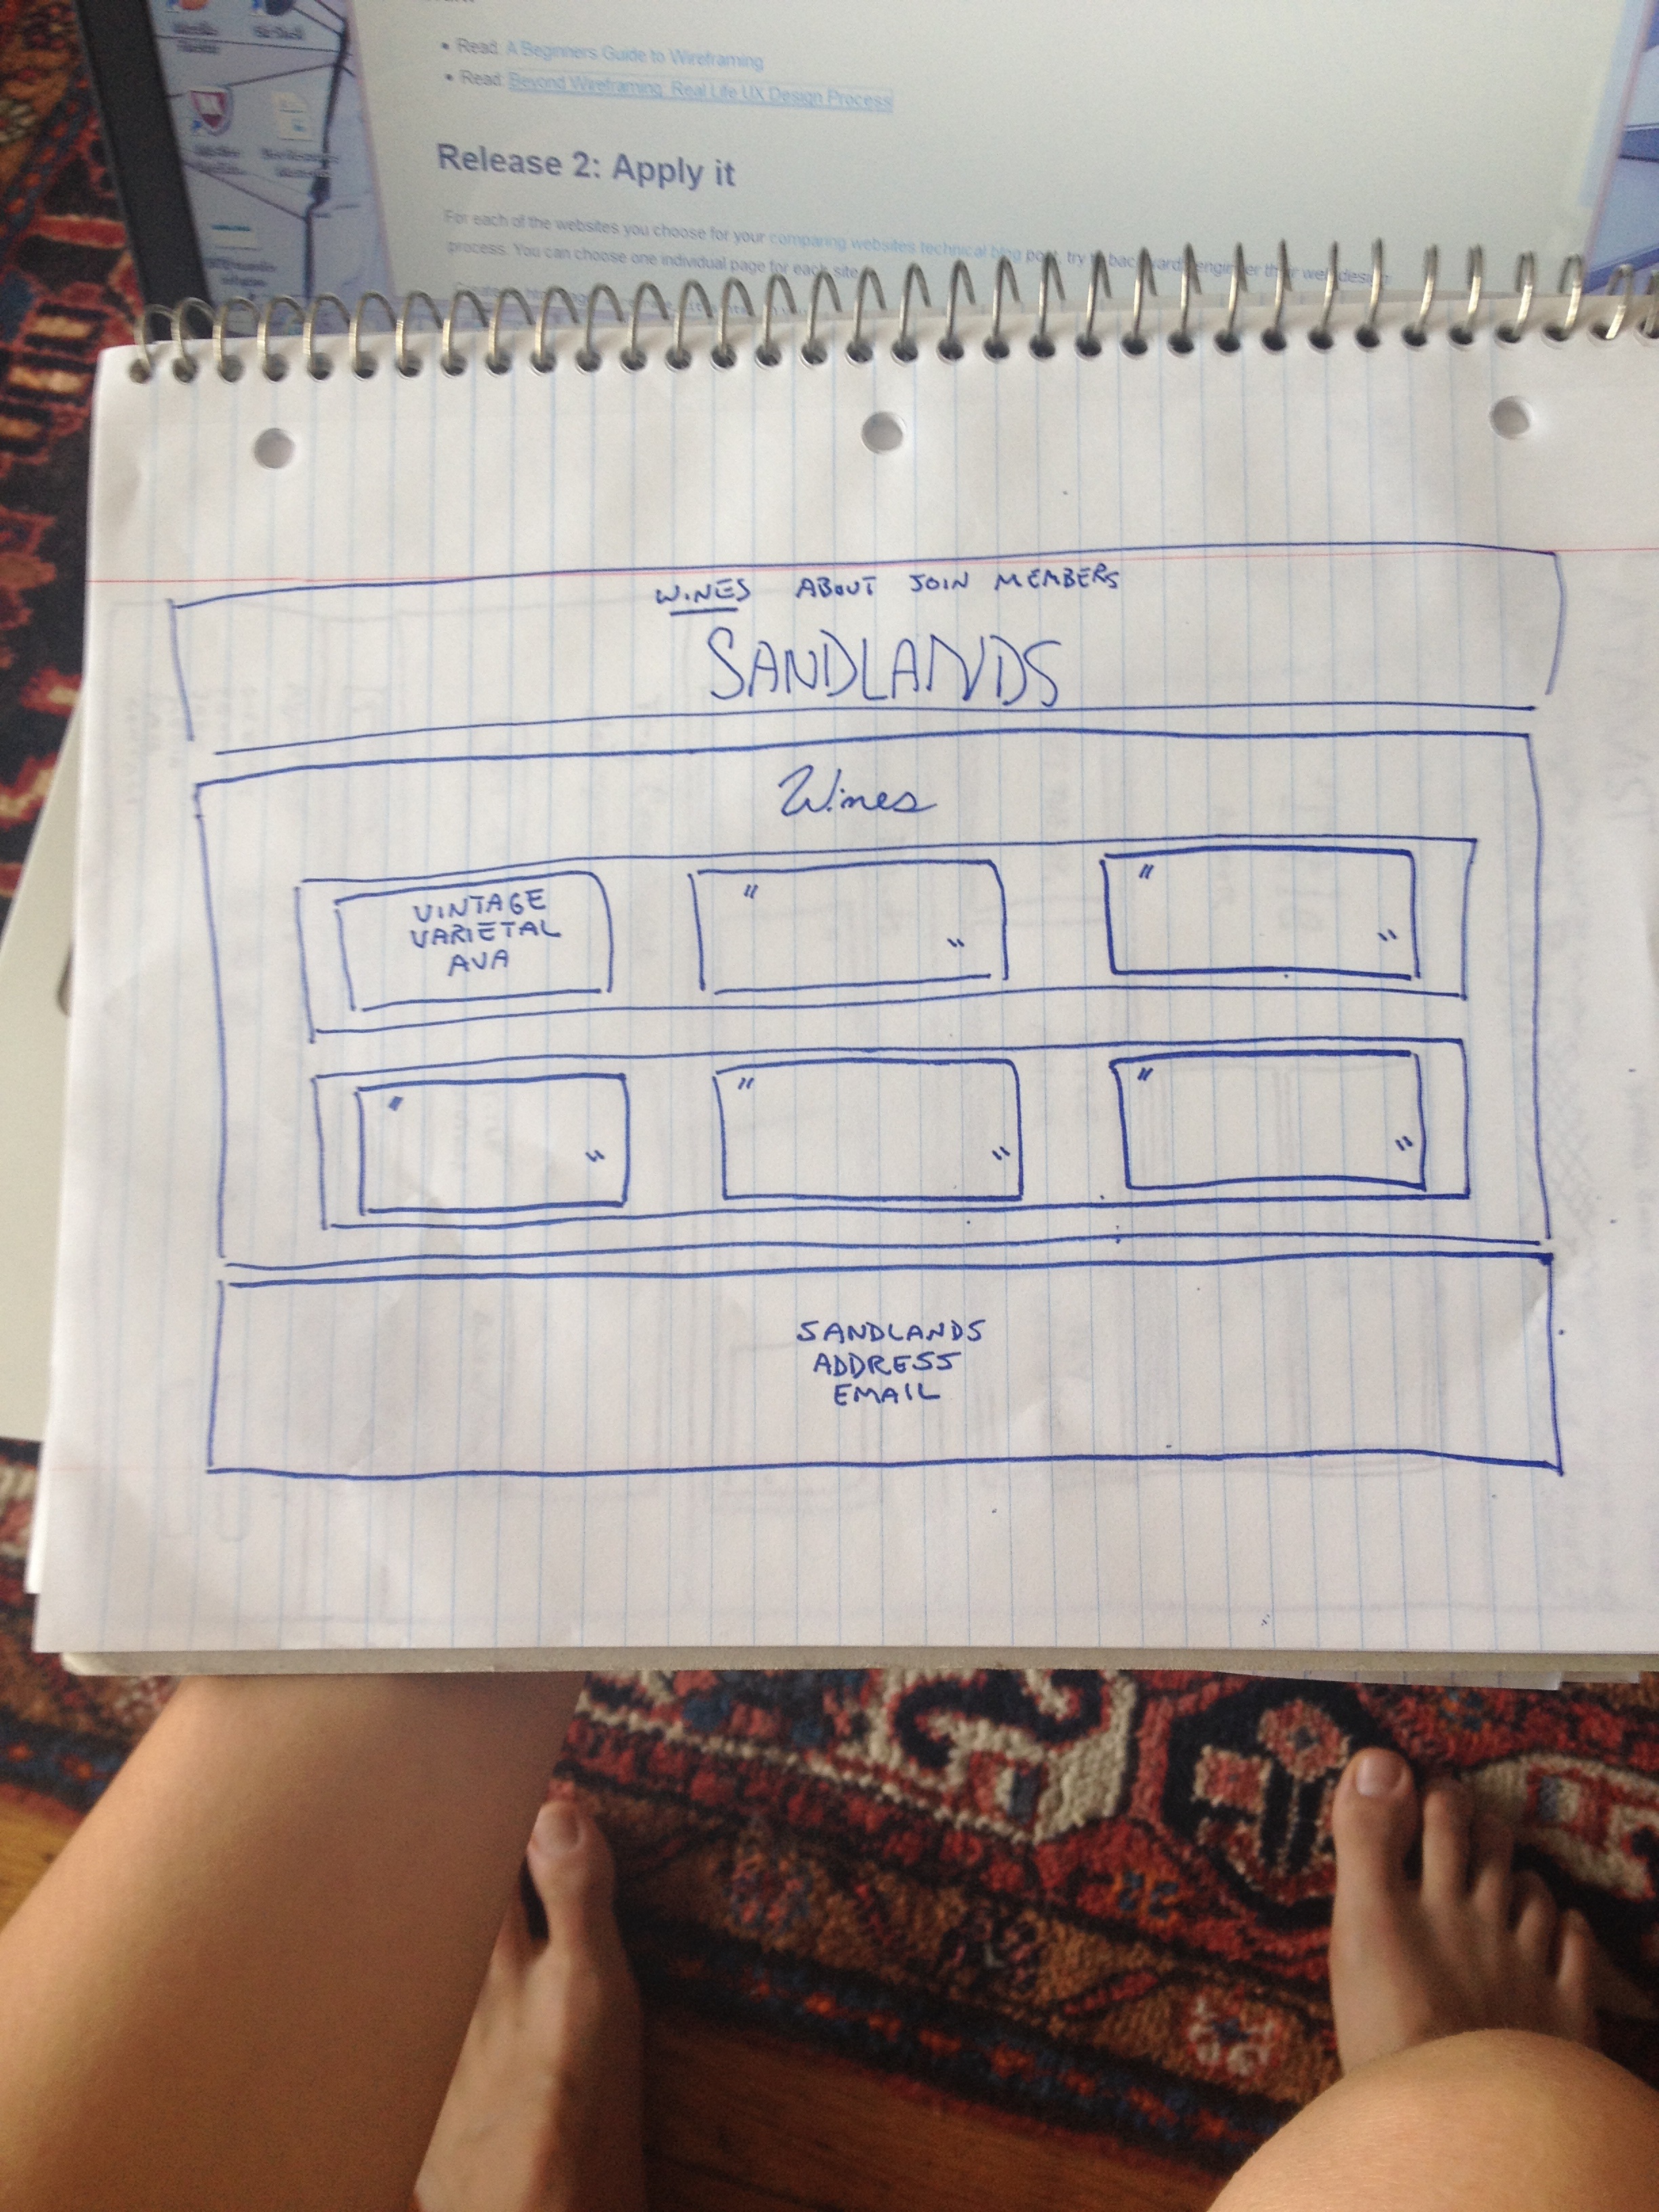 Read: A Beginners Guide to Wireframing
Read: Beyond Wireframing: Real Life UX Design Process
Release 2: Apply it
For each of the websites you choose for your comparing websites technical blog post, try backward engineer their web design
process. You can choose one individual page for each site.
WINES ABOUT JOIN MEMBERS
SANDLANDS
Wines
VINTAGE
VARIETAL
AVA
" "
" "
" "
" "
" "
SANDLANDS
ADDRESS
EMAIL